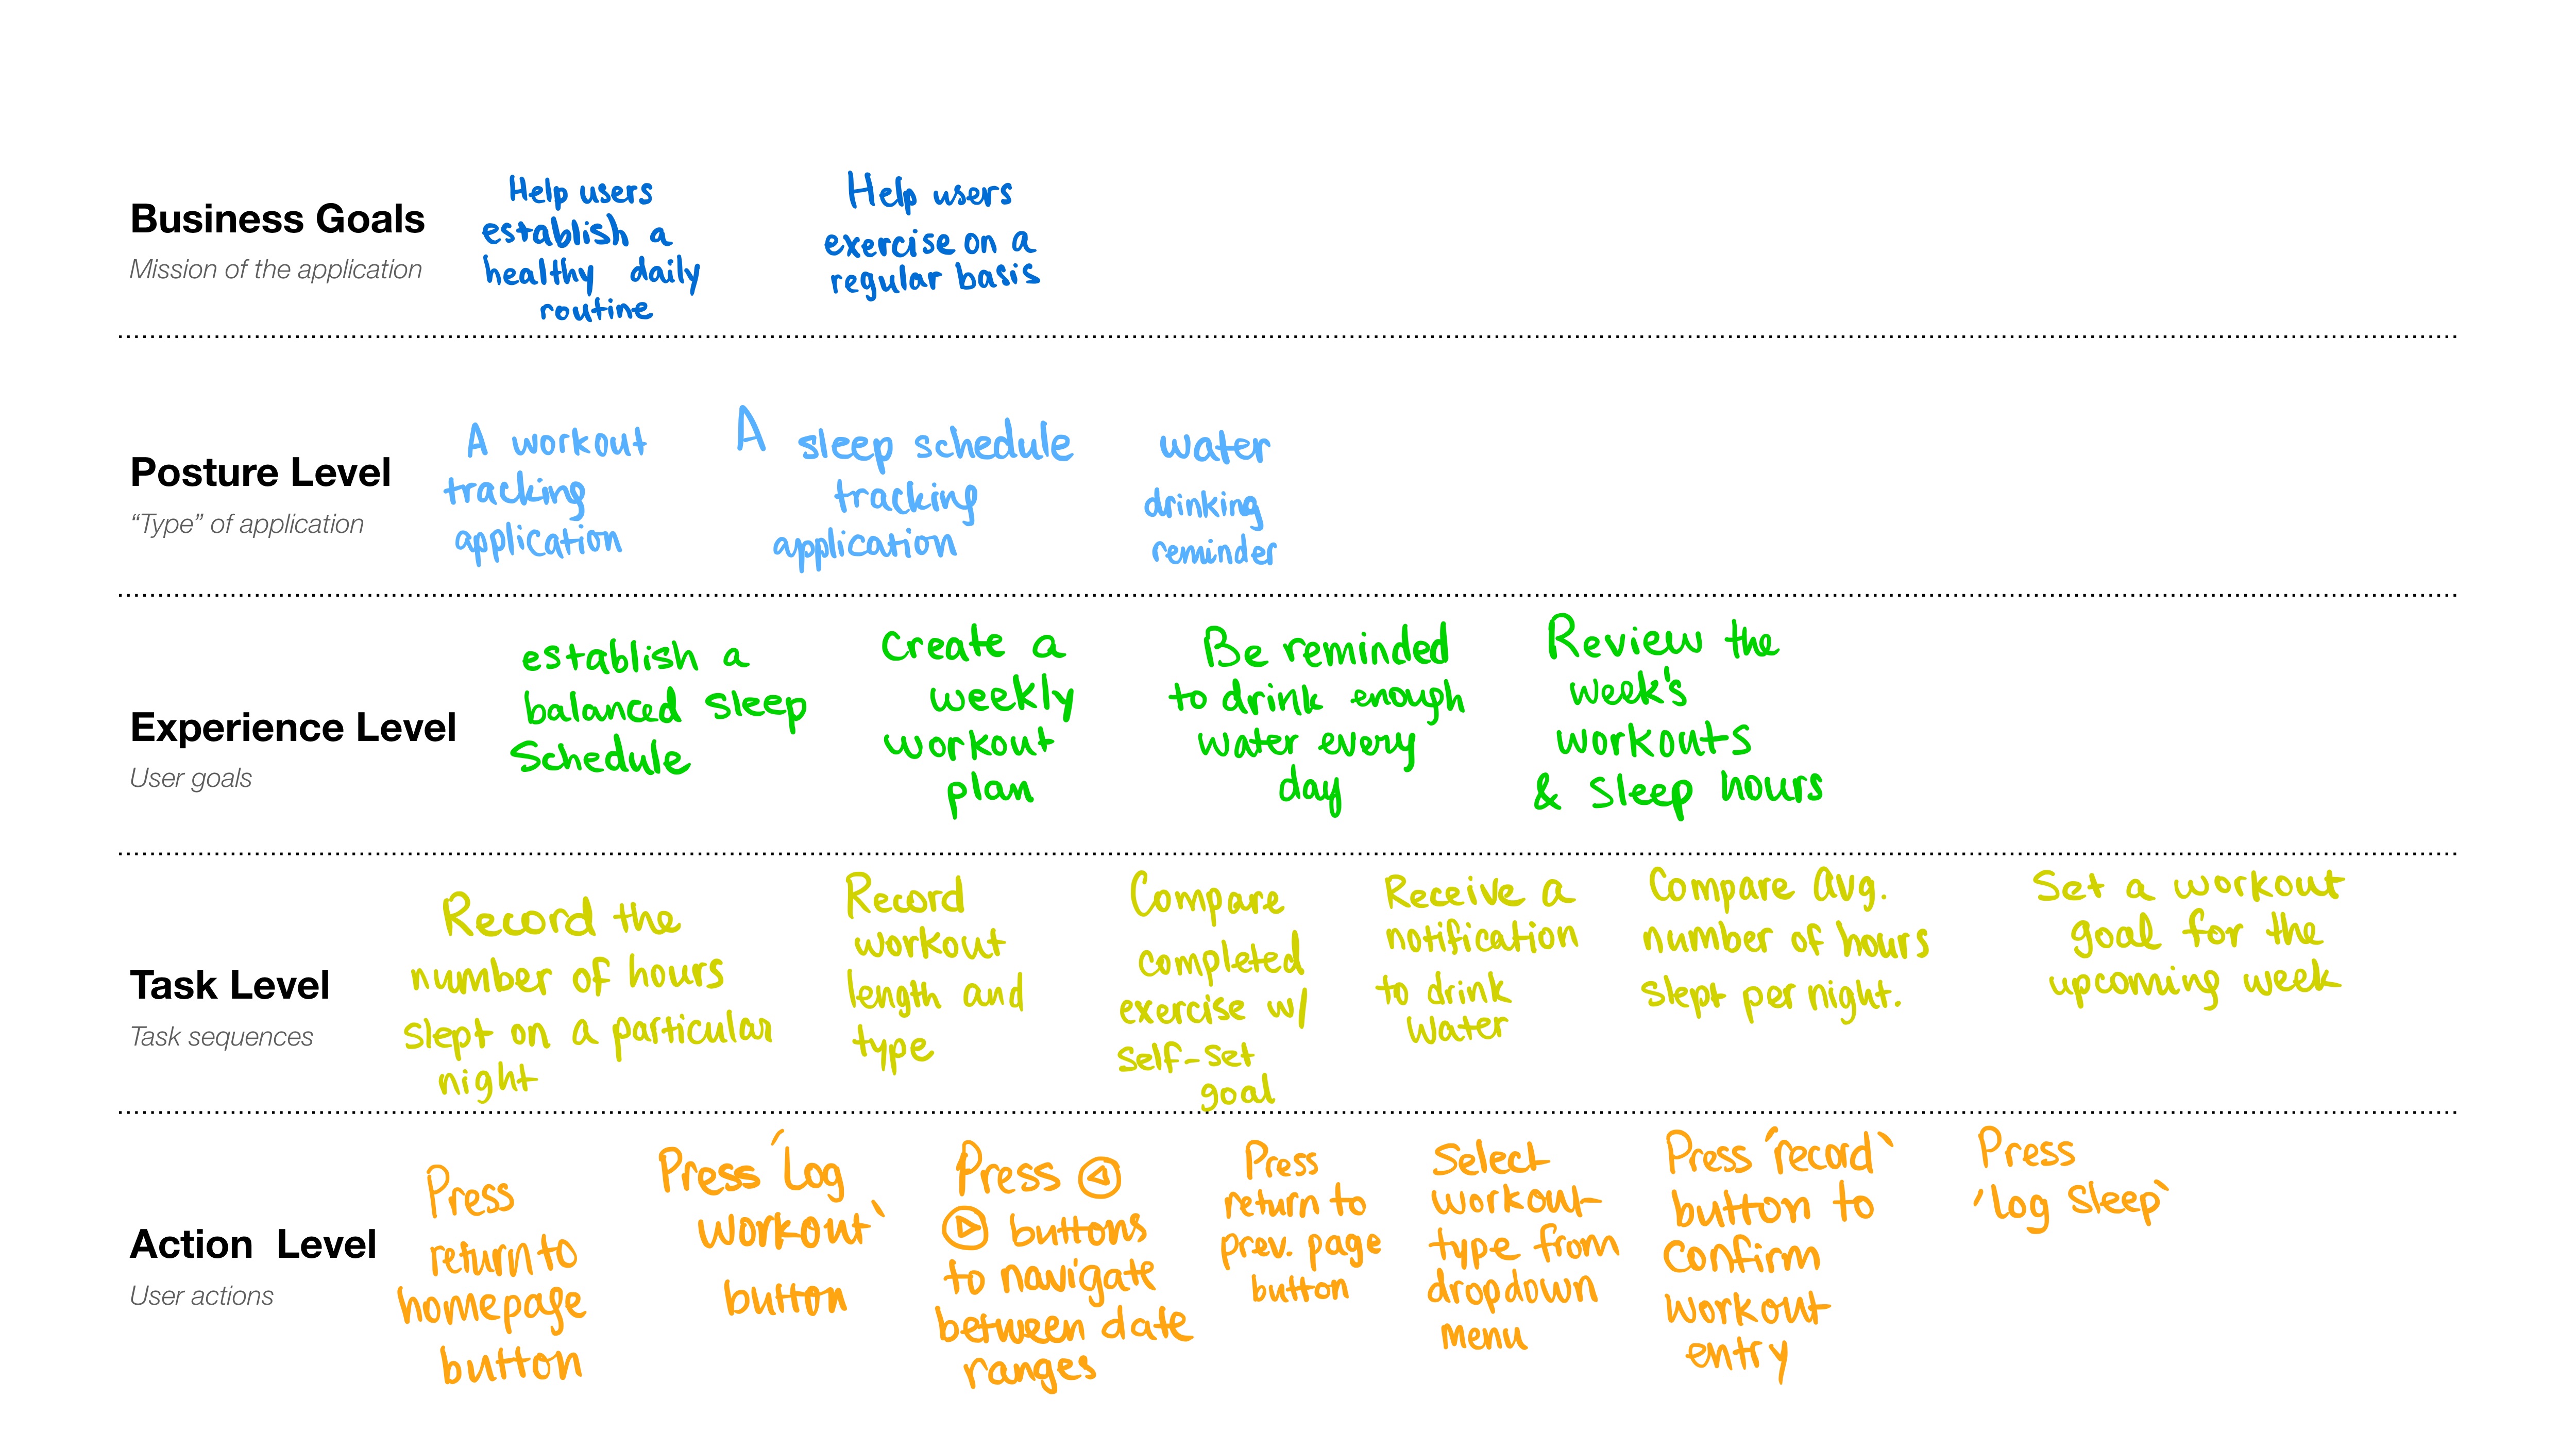 Business Goals
Mission of the application
Help users
establish a
healthy daily
routine
Help users
exercise on a
regular basis
Posture Level
“Type” of application
A workout
tracking
application
A sleep schedule
tracking
application
water
drinking
reminder
Experience Level
User goals
establish a
balanced sleep
Schedule
Create a
weekly
workout
plan
Be reminded
to drink enough
water every
day
Review the
week's
workouts
& Sleep hours
Task Level
Task sequences
Record the
number of hours
slept on a particular
night
Record
workout
length and
type
Compare
completed
exercise w/
self-set
goal
Receive a
notification
to drink
water
Compare avg.
number of hours
slept per night.
Set a workout
goal for the
upcoming week
Action Level
User actions
Press
return to
homepage
button
Press 'Log
workout'
button
Press ◁
▷ buttons
to navigate
between date
ranges
Press
return to
prev. page
button
Select
workout
type from
dropdown
menu
Press 'record'
button to
confirm
workout
entry
Press
'log sleep'